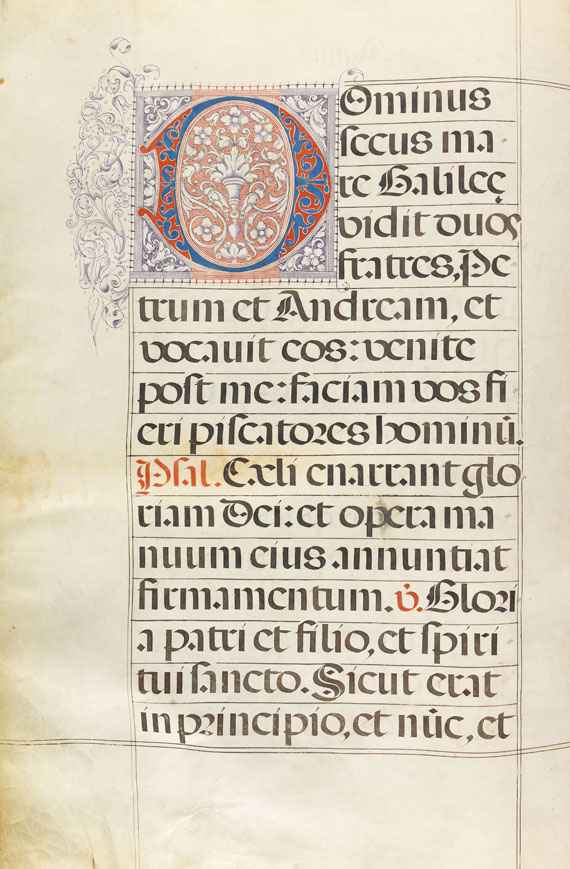 DOminus
secus ma=
re Galileę
vidit duos
fratres, Pe=
trum et Andream, et
vocauit eos: venite
post me: faciam vos fi=
eri piscatores hominū.
Psal. Cæli enarrant glo=
riam Dei: et opera ma=
nuum eius annuntiat
firmamentum. v̇. Glori=
a patri et filio, et spiri=
tui sancto. Sicut erat
in principio, et nūc, et